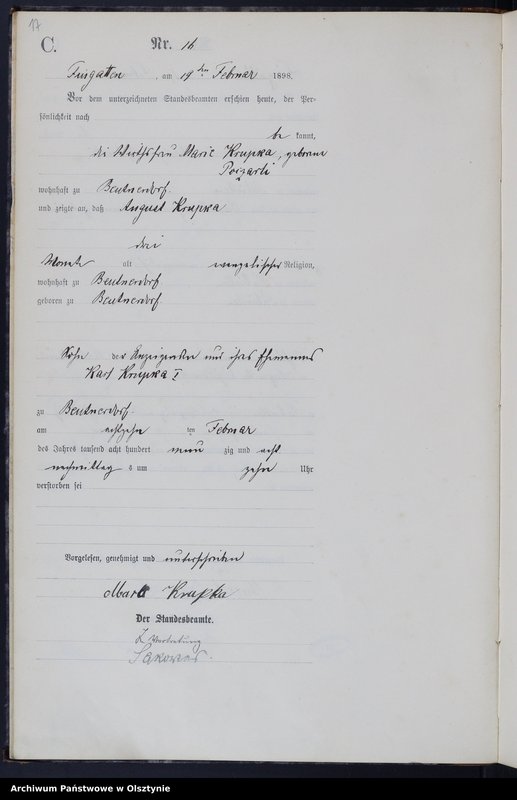 17
C. Nr. 16
Friesgatten, am 19 ten Februar 1898.
Vor dem unterzeichneten Standesbeamten erschien heute, der Per-
sönlichkeit nach
be kannt,
die Wirthsfrau Marie Krupka, geborene
wohnhaft zu Beutnerdorf
und zeigte an, daß August Krupka
drei
Monate alt evangelischer Religion,
wohnhaft zu Beutnerdorf
geboren zu Beutnerdorf
Sohn der Anzeigenden und ihres Ehemannes
Karl Krupka I
zu Beutnerdorf
am achtzehn ten Februar
des Jahres tausend acht hundert neun zig und acht
nachmittag s um zehn Uhr
verstorben sei
Vorgelesen, genehmigt und unterschrieben
Marie Krupka
Der Standesbeamte.
Vertretung
Archiwum Państwowe w Olsztynie